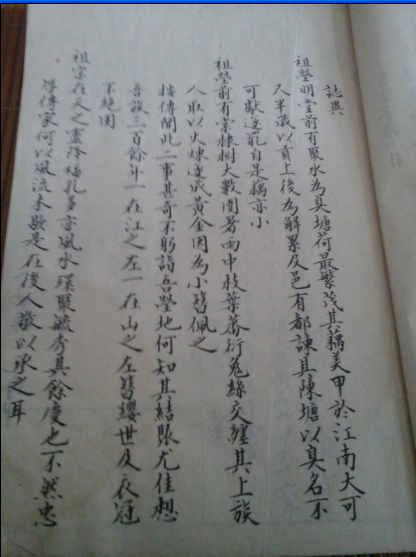 誌異
祖塋明堂前有聚水為臭塘荷最繁茂其藕美甲於江南大可
尺半歲以貢上後為解累及邑有都諫具陳塘以臭名不
可獻遂寢自是藕亦小
祖塋前有棠棣樹大數圍暑雨中枝葉蕃衍兔絲交纏其上族
人取以火煉遂成黃金因為小簪佩之
按傳聞此二事甚奇不躬詣吾塋地何知其結脹尤佳想
吾族三百餘年一在江之左一在山之左簪纓世及衣冠
不絕固
祖宗在天之靈降福孔多亦風水環聚毓秀其餘慶也不然忠
厚傳家何以風流未歇是在後人敬以承之耳